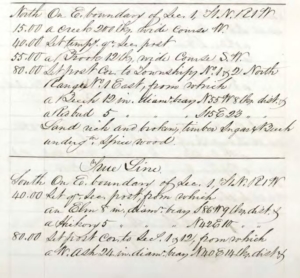 North On E. boundary of Sec. 1, T1N. R1W
15.00 a Creek 200 lks. wide course W.
40.00 Set temp. qr. Sec. post
55.00 a Brook 12 lks. wide Course S.W.
80.00 Set post Cor. to Townships No. 1 & 2 North
Range No. 1 East, from which
a Beech 12 in. diam. bears N 55 W 8 lks. dist. &
5 S 15 E 23
Land rich and broken, timber Sugar & Beech
undergr. Spice wood.
True Line
South On E. boundary of Sec. 1, T1N. R1W
40.00 Set qr. Sec. post, from which
an Elm 8 in. diam. bears S 86 W 9 lks. dist. &
a Hickory 5 N 42 E
80.00 Set post Cor. to Secs. 1 & 12, from which
a W. Ash 24 in. diam. bears N 40 E 14 lks. dist. &